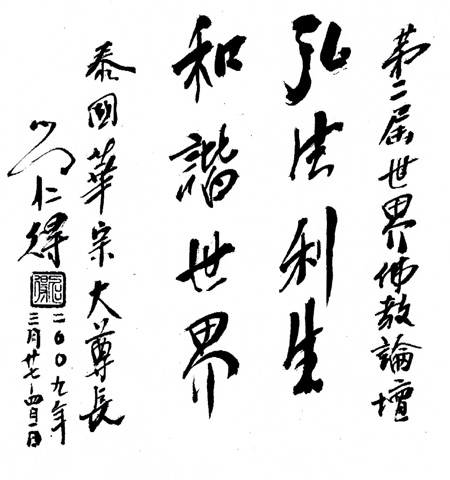 第二届世界佛教論壇
弘法利生
和諧世界
泰國華宗大尊長
仁得
二00九年
三月廿七-四月一日